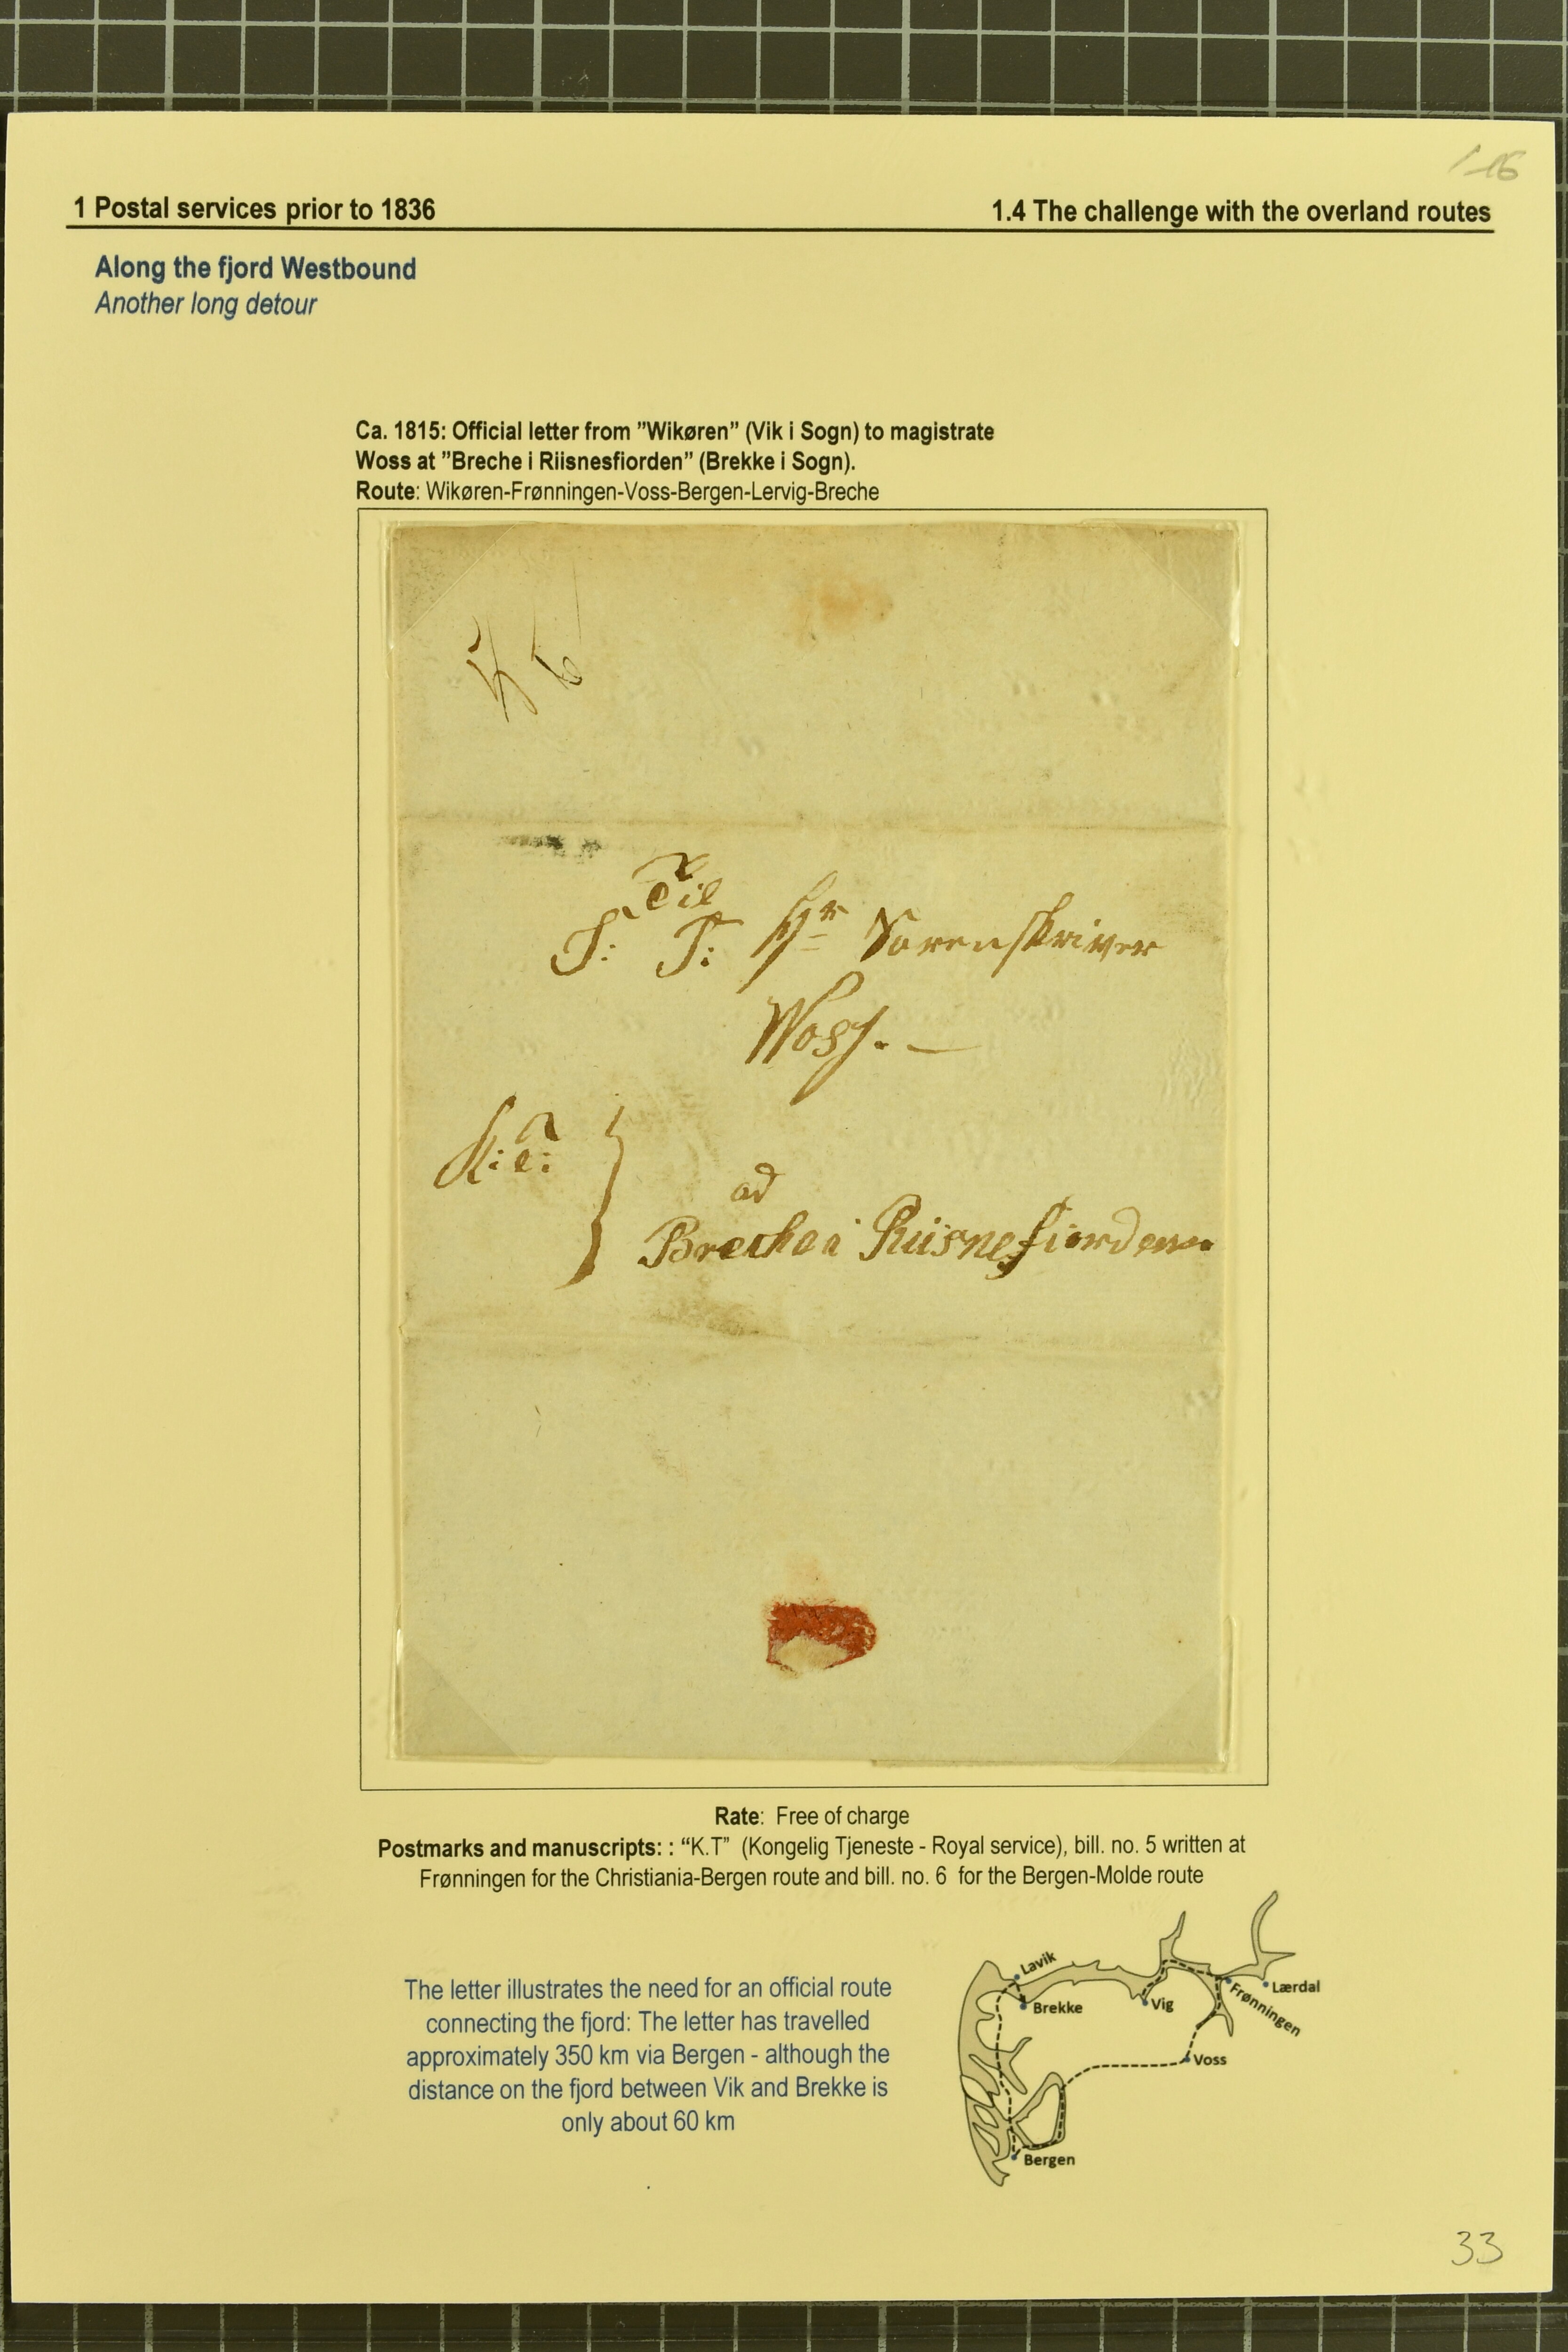 1-16
1 Postal services prior to 1836
1.4 The challenge with the overland routes
Along the fjord Westbound
Another long detour
Ca. 1815: Official letter from ”Wikøren” (Vik i Sogn) to magistrate
Woss at ”Breche i Riisnesfiorden” (Brekke i Sogn).
Route: Wikøren-Frønningen-Voss-Bergen-Lervig-Breche
5 6
Til
S: T: Hr Sorenskriver
Woss. —
K: T:
ad
Breche i Riisnesfiorden
Rate: Free of charge
Postmarks and manuscripts: : “K.T” (Kongelig Tjeneste - Royal service), bill. no. 5 written at
Frønningen for the Christiania-Bergen route and bill. no. 6 for the Bergen-Molde route
The letter illustrates the need for an official route
connecting the fjord: The letter has travelled
approximately 350 km via Bergen - although the
distance on the fjord between Vik and Brekke is
only about 60 km
Lavik
Brekke
Vig
Frønningen
Lærdal
Voss
Bergen
33